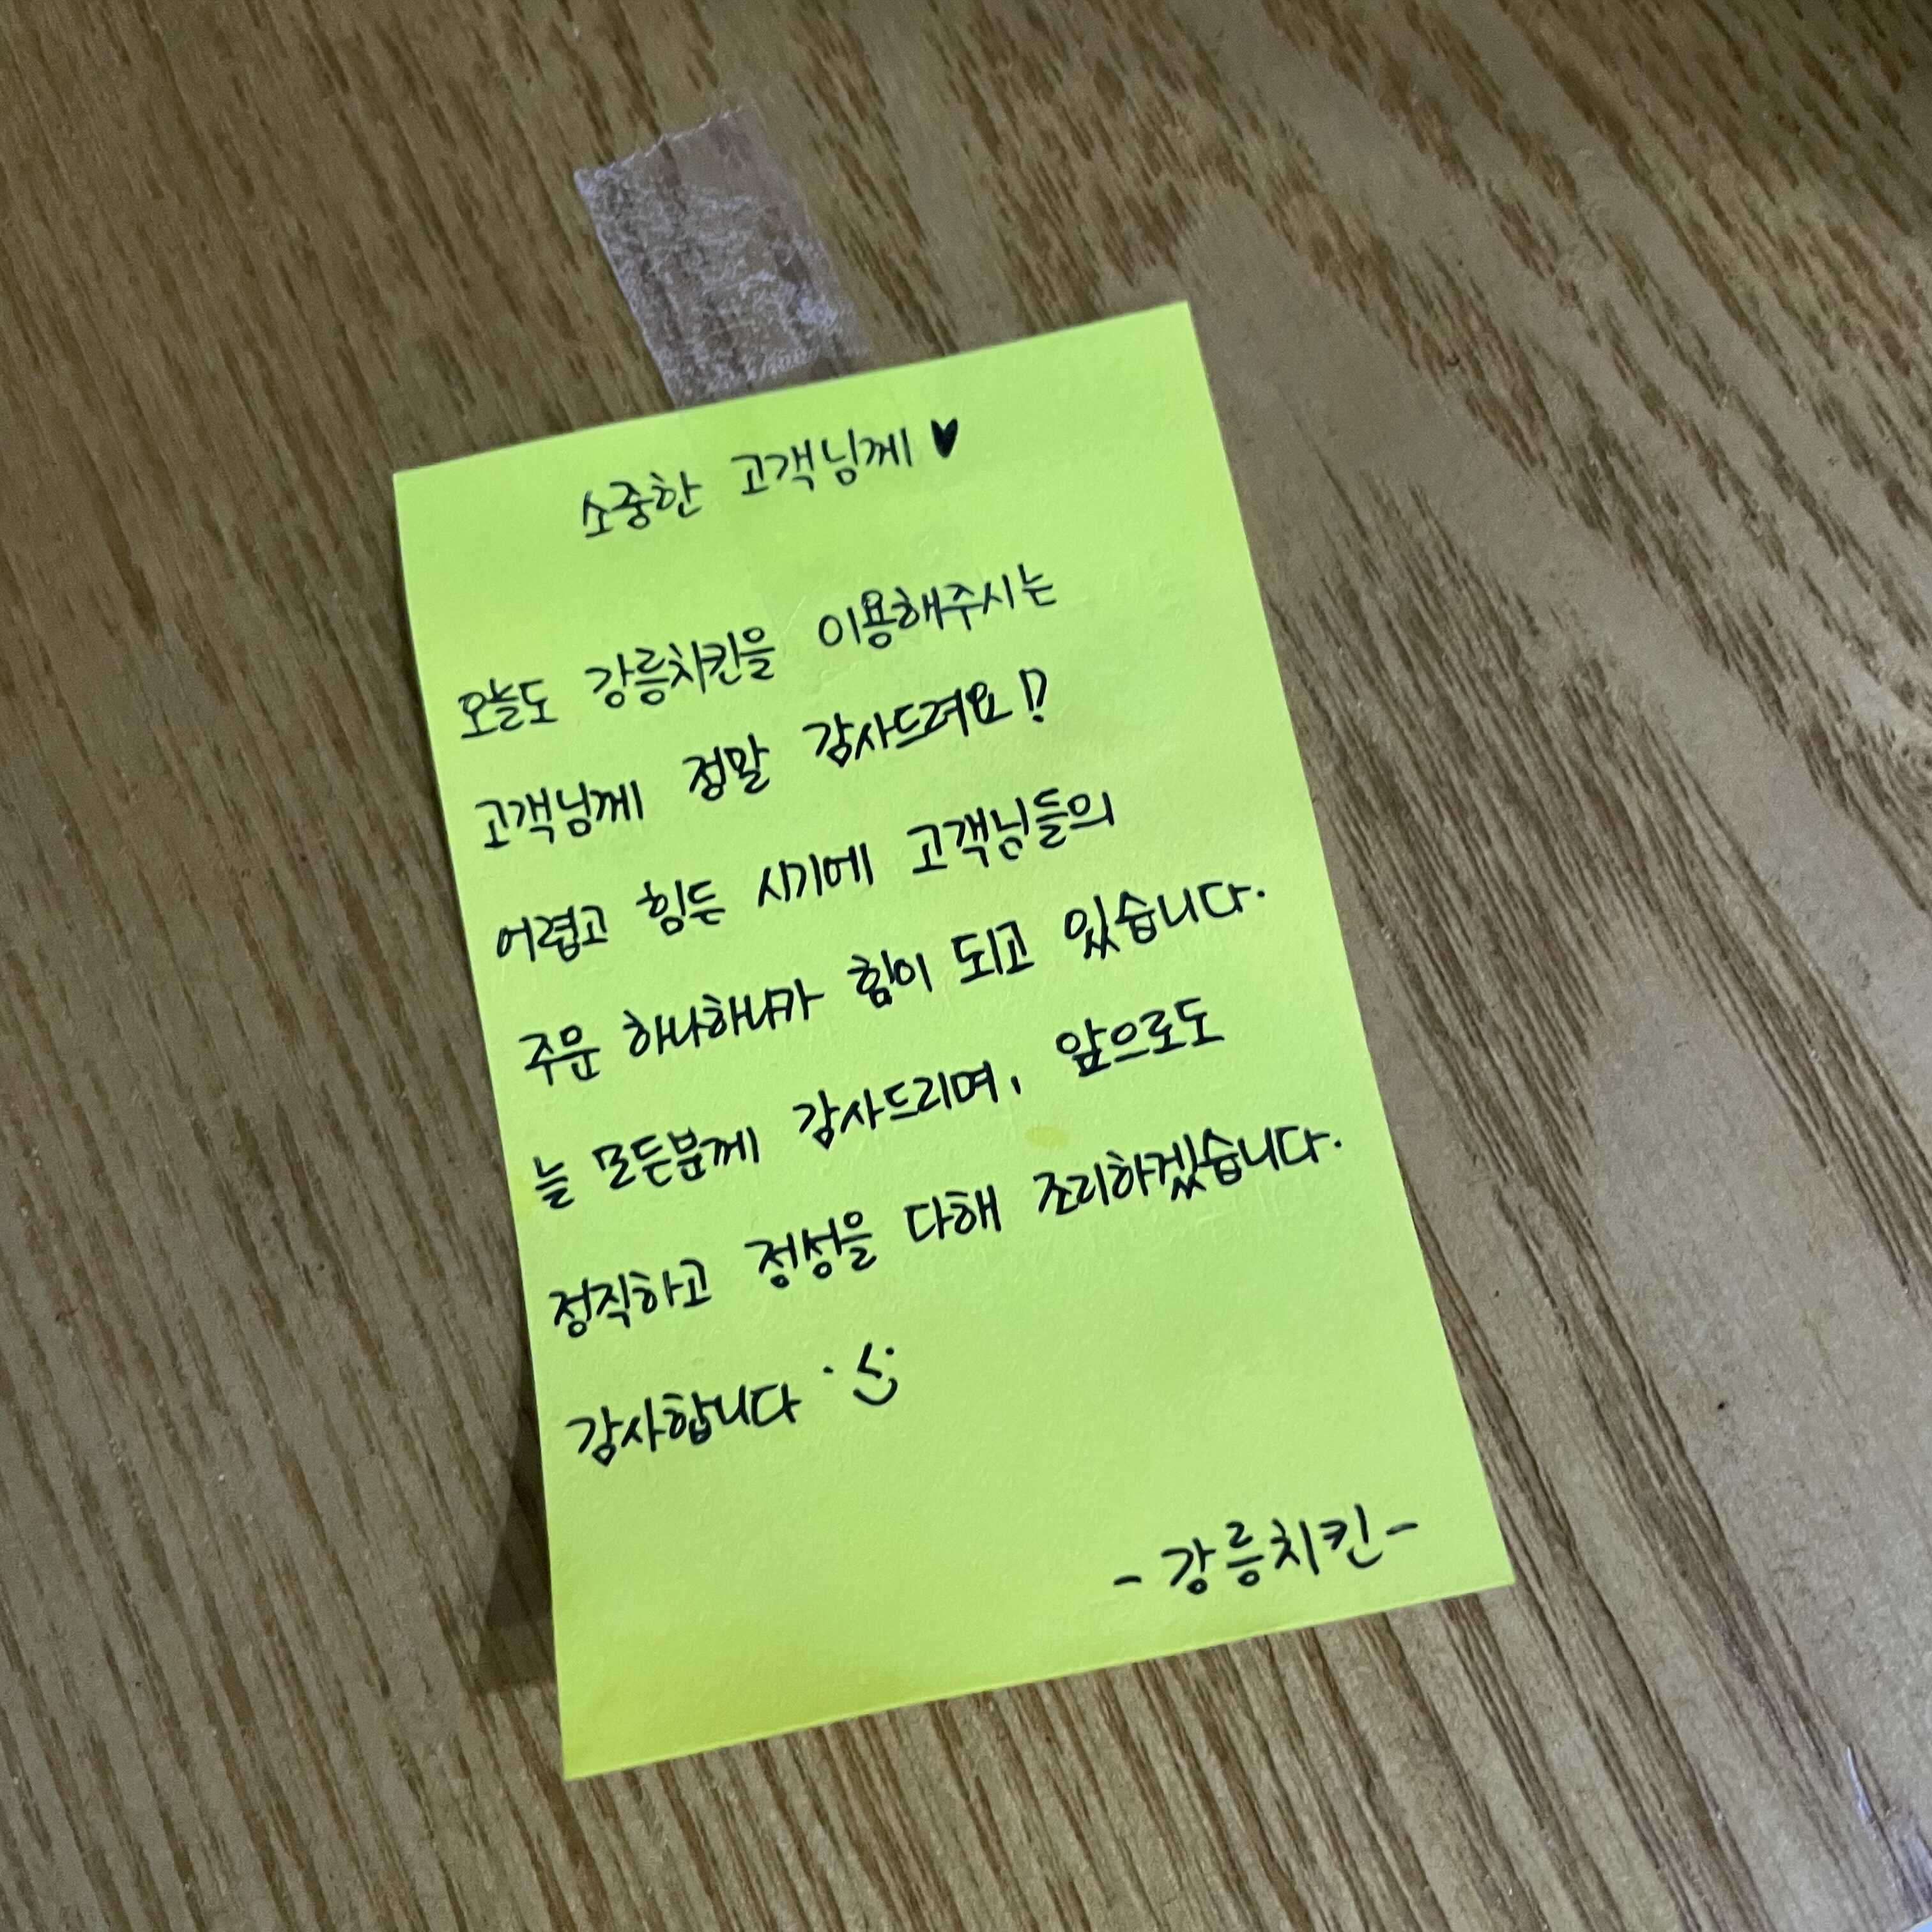 소중한 고객님께 ♥
오늘도 강릉치킨을 이용해주시는
고객님께 정말 감사드려요!?
어렵고 힘든 시기에 고객님들의
주문 하나하나가 힘이 되고 있습니다.
늘 모든분께 감사드리며, 앞으로도
정직하고 정성을 다해 조리하겠습니다.
감사합니다
-강릉치킨-